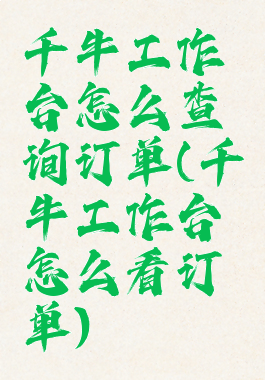 千牛工作
台怎么查
询订单(千
牛工作台
怎么看订
单)